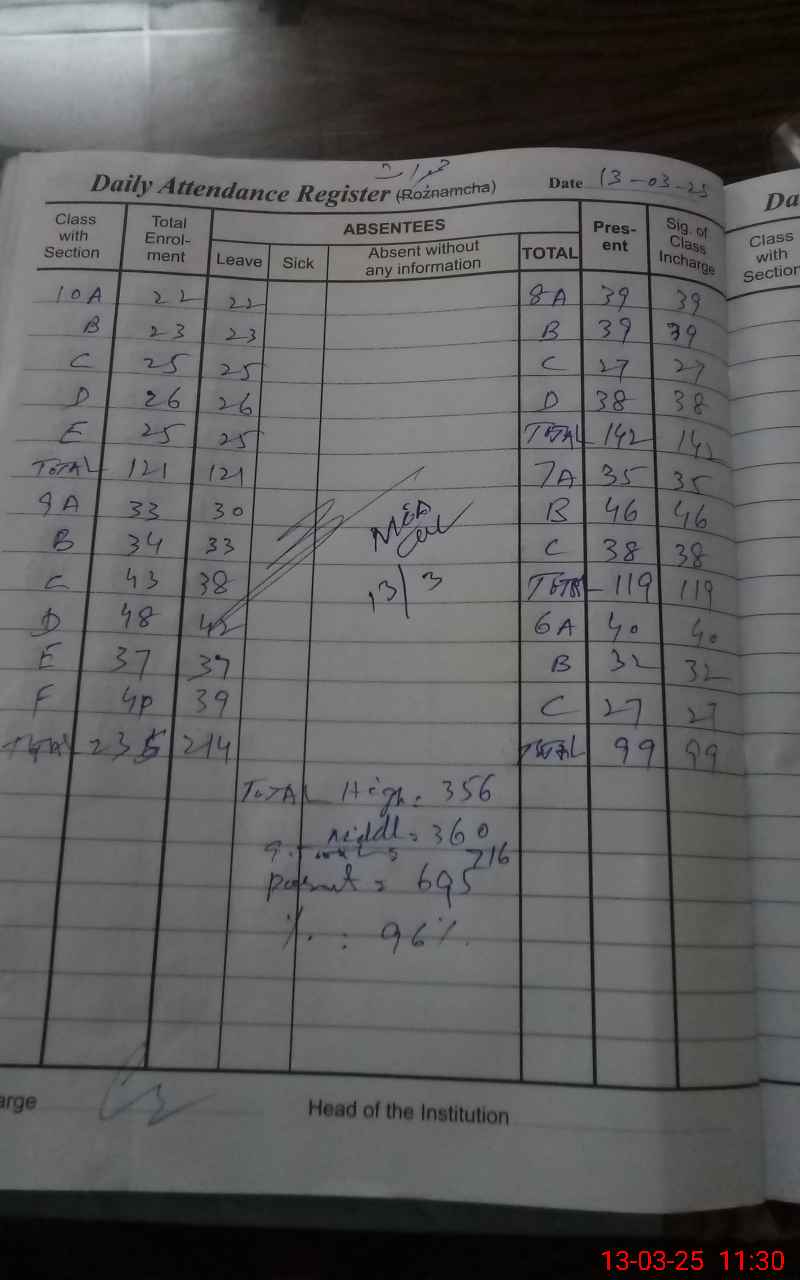 جمعرات
Daily Attendance Register (Roznamcha) Date 13-03-25
Class with Section Total Enrol-ment ABSENTEES Pres-ent Sig. of Class Incharge
Leave Sick Absent without any information TOTAL
10A 22 22 8A 39 39
B 23 23 B 39 39
C 25 25 C 27 27
D 26 26 D 38 38
E 25 25 TOTAL 142 142
TOTAL 121 121 7A 35 35
9A 33 30 B 46 46
B 34 33 C 38 38
C 43 38 TOTAL 119 119
D 48 42 6A 40 40
E 37 37 B 32 32
F 40 39 C 27 27
TOTAL 235 214 TOTAL 99 99
13/3
TOTAL High = 356
middl = 360
716
Present = 695
% : 96%
arge Head of the Institution
Da
Class with Section
13-03-25 11:30